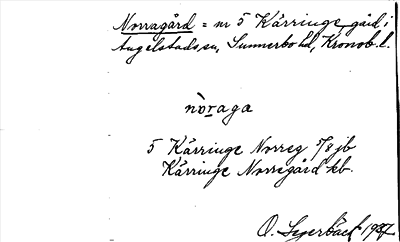 Norragård = nr 5 Kärringe, gård i
Angelstads sn, Sunnerbo hd, Kronob. l.
nòraga
5 Kärringe Norreg 5/8 jb
Kärringe Norregård kb.
O. Segerbäck 1937